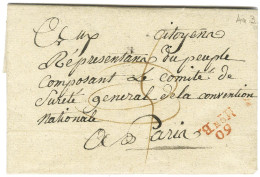 Aux Citoyens
Représentans du peuple
composant le Comité de
Sureté general de la convention
Nationale
A Paris